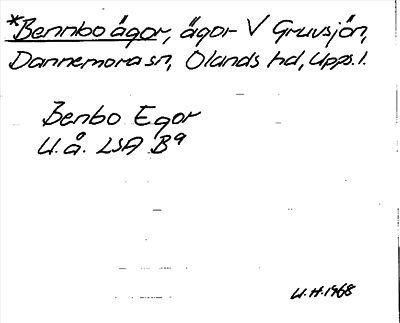 *Bennbo ägor, ägor V Gruvsjön,
Dannemora sn, Olands hd, Upps. l.
Benbo Egor
U.å. LSA B9
U.H. 1968